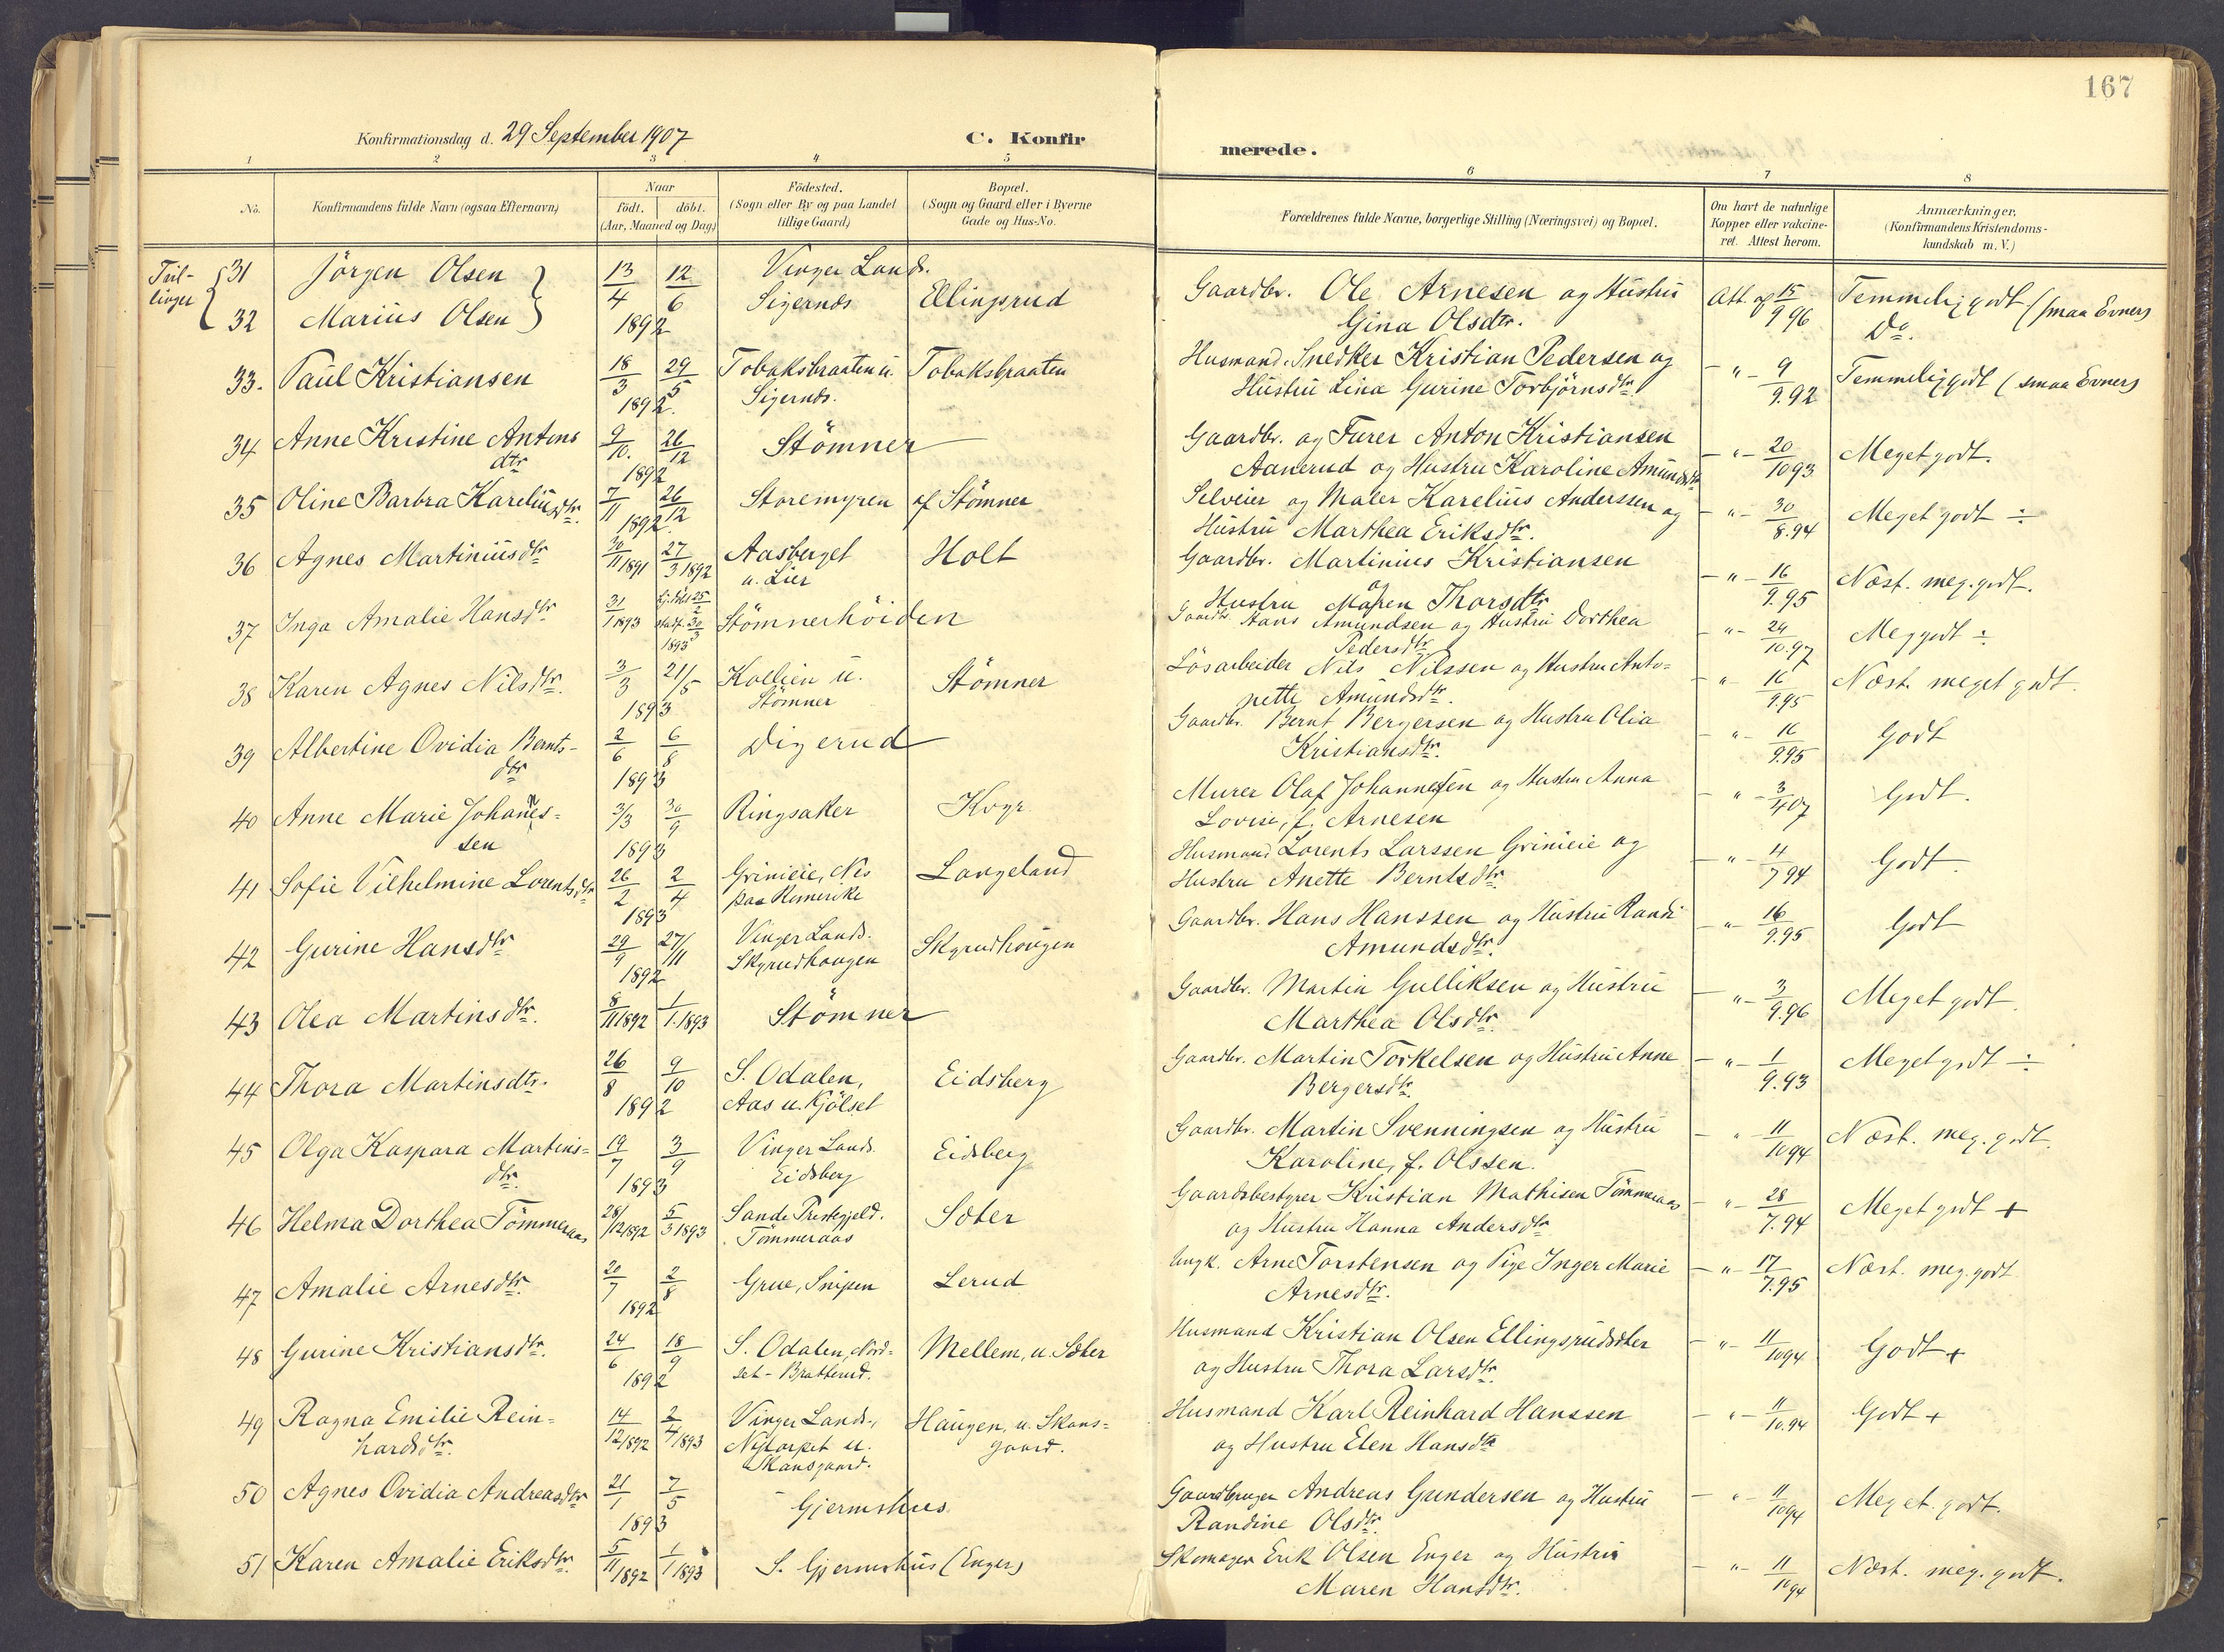 167
Konfirmationsdag d. 29 September 1907
C. Konfir
merede.
1 2 3 4 5 6 7 8
No.
Konfirmandens fulde Navn (ogsaa Efternavn)
Naar
födt. döbt.
(Aar, Maaned og Dag)
Födested.
(Sogn eller By og paa Landet
tillige Gaard)
Bopæl.
(Sogn og Gaard eller i Byerne
Gade og Hus-No.
Forældrenes fulde Navne, borgerlige Stilling (Næringsvei) og Bopæl.
Om havt de naturlige
Kopper eller vakcine-
ret. Attest herom.
Anmærkninger,
(Konfirmandens Kristendoms-
kundskab m. V.)
Tvil-
linger
31 Jörgen Olsen 13/4 12/6 Vinger Lands. Gaardbr. Ole Arnesen og Hustru Att. af 15/9 96 Temmelig godt (smaa Evner)
32 Marius Olsen 1892 Sigernæs Ellingsrud Gina Olsdtr. Do.
33. Paul Kristiansen 18/3 29/5 Tobaksbraaten u. Tobaksbraaten Husmand. Snedker Kristian Pedersen og - " - 9/9.92 Temmelig godt (smaa Evner)
1892. Sigernæs. Hustru Lina Gurine Torbjörnsdtr.
34 Anne Kristine Antons 9/10. 26/12 Stömner Gaardbr. og Furer Anton Kristiansen - " - 20/10 93 Meget godt.
dtr 1892 Aanerud og Hustru Karoline Amundsdtr
35 Oline Barbra Kareliusdtr. 7/11 26/12 Storemyren af Stömner Selveier og Maler Karelius Anderssen og - " - 30/8.94 Meget godt ÷
1892 Hustru Marthea Eriksdtr.
36 Agnes Martiniusdtr 30/11 1891 27/3 1892 Aasberget Holt Gaardbr. Martinius Kristiansen - " - 16/9.95 Næst. meg. godt.
u. Lier og
Hustru Maren Thorsdtr
37 Inga Amalie Hansdtr 31/1 1893 hj. döbt 25/2 stadf. 30/3 1893 Stömnerhöiden Gaardbr. Hans Amundsen og Hustru Dorthea - " - 24/10.97 Meg godt ÷
Pedersdtr
38 Karen Agnes Nilsdtr. 3/3 21/5 Kollien u. Stömner Lösarbeider Nils Nilssen og Hustru Anto= - " - 16/9.95 Næst. meget godt.
1893 Stömner nette Amundsdtr.
39 Albertine Ovidia Bernts- 2/6 6/8 Digerud Gaardbr. Bernt Bergersen og Hustru Olia - " - 16/9.95 Godt
dtr 1893 Kristiansdtr.
40 Anne Marie Johannes= 3/3 30/9 Ringsaker Kogr Murer Olaf Johannessen og Hustru Anna - " - 3/4 07 Godt.
sen 1893 Lovise, f. Arnesen
41 Sofie Vilhelmine Lorentsdtr 26/2 2/4 Grinieie, Nes Langeland Husmand Lorents Larssen Grinieie og - " - 4/7 94 Godt
1893 paa Romerike Hustru Anette Berntsdtr.
42 Gurine Hansdtr 29/9 27/11 Vinger Lands. Skyrudhougen Gaardbr. Hans Hanssen og Hustru Randi - " - 16/9.95 Godt
1892 Skyrudhaugen Amundsdtr.
43 Olea Martinsdtr. 8/11 1892 1/1.1893 Stömner Gaardbr. Martin Gulliksen og Hustru - " - 3/9.96 Meget godt
Marthea Olsdtr.
44 Thora Martinsdtr. 26/8 9/10 S. Odalen, Eidsberg Gaardbr. Martin Torkelsen og Hustru Anne - " - 1/9.93 Meget godt ÷
1892 Aas u. Kjölset Bergersdtr.
45 Olga Kaspara Martins= 19/7 3/9 Vinger Lands. Eidsberg Gaardbr. Martin Svenningsen og Hustru - " - 11/10 94 Næst. meg. godt.
dtr. 1893 Eidsberg Karoline, f. Olssen.
46 Helma Dorthea Tömmeraas 28/12 1892 5/3 1893 Sande Prestegjeld. Sæter Gaardsbestyrer Kristian Mathisen Tömmeraas - " - 28/7.94 Meget godt +
Tömmeraas og Hustru Hanna Andersdtr
47 Amalie Arnesdtr. 20/7 2/8 Grue, Snipen Lerud Ungk. Arne Torstensen og Pige Inger Marie - " - 17/7.95 Næst. meg. godt
1892 Arnesdtr.
48 Gurine Kristiansdtr. 24/6 18/9 S. Odalen, Nord= Mellem, u. Sæter Husmand Kristian Olsen Ellingsrudsæter - " - 11/10 94 Godt +
1892 set - Bratterud. og Hustru Thora Larsdtr.
49 Ragna Emilie Rein= 14/12 1892 2/4 1893 Vinger Lands., Haugen, u. Skans= Husmand Karl Reinhard Hanssen - " - 11/10.94 Godt +
hardsdtr. Nytorpet u. gaard. og Hustru Elen Hansdtr
Skansgaard.
50 Agnes Ovidia Andreasdtr 21/1 7/5 Gjermshus Gaardbruger Andreas Gundersen og Hustru - " - 11/10 94 Meget godt.
1893 Randine Olsdtr.
51 Karen Amalie Eriksdtr. 5/11 1892 1/1 1893 S. Gjermshus (Enger) Skomager Erik Olsen Enger og Hustru - " - 11/10 94 Næst. meg. godt.
Maren Hansdtr.